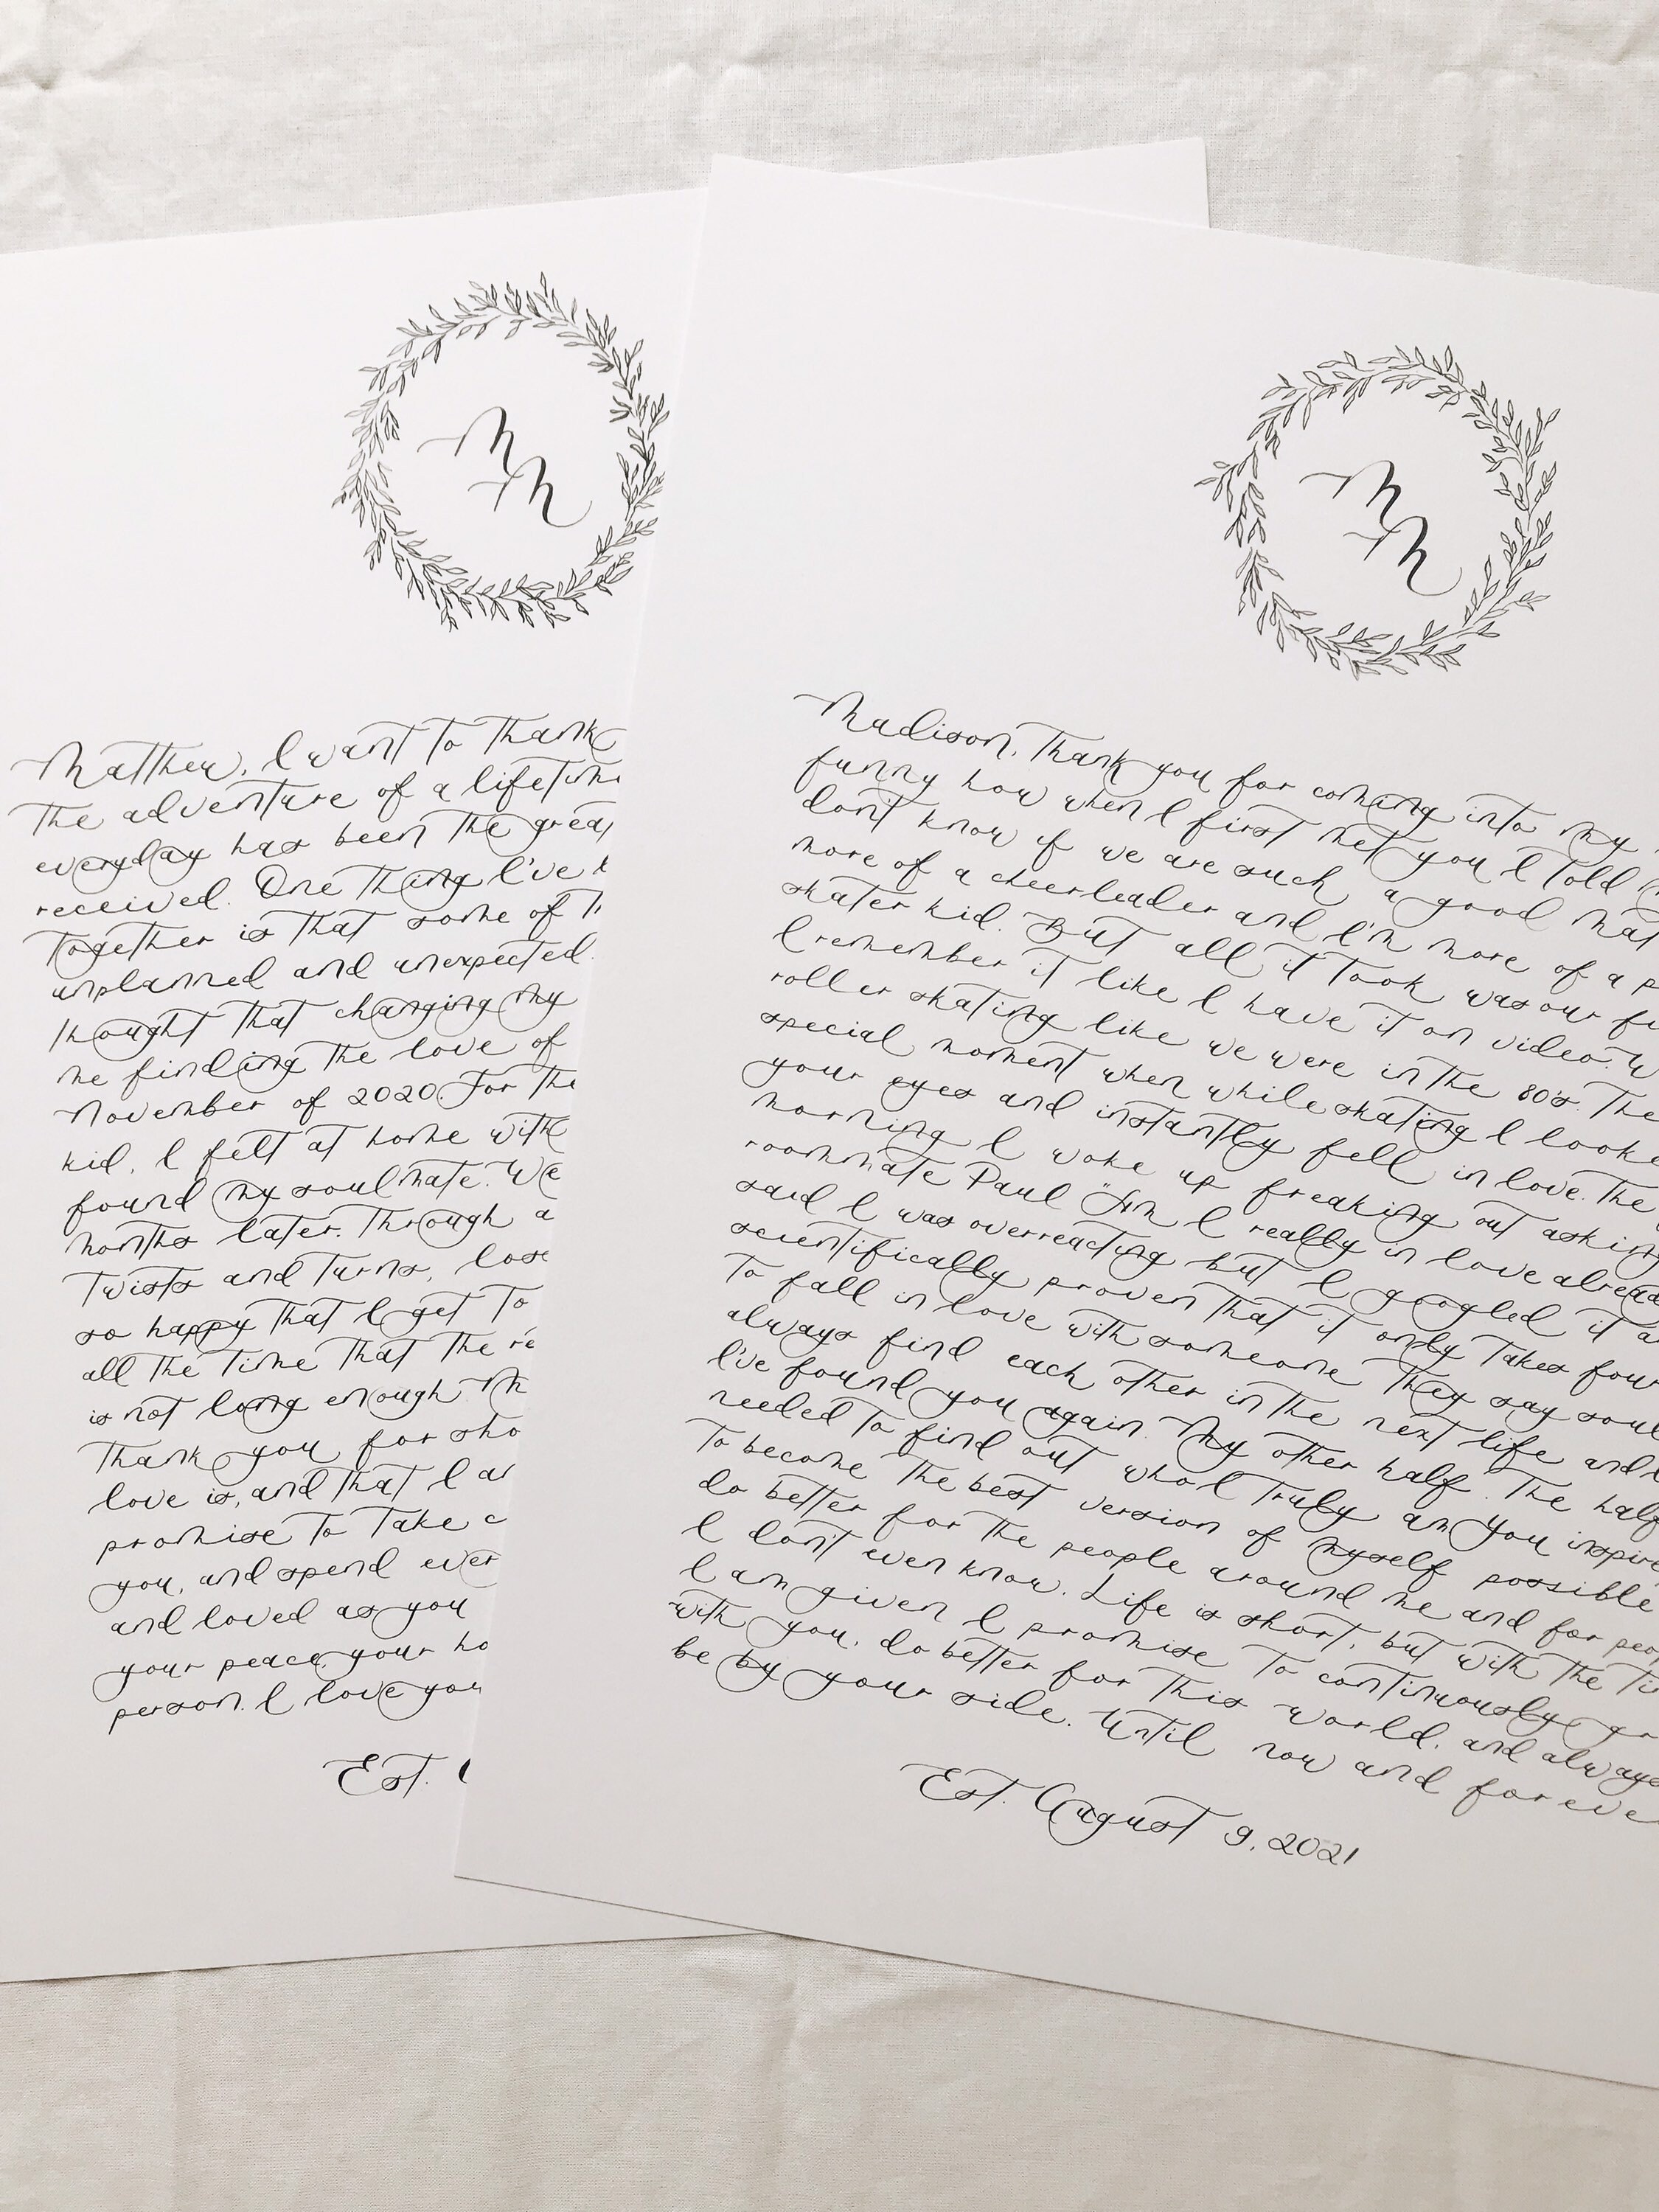 M
M
Matthew, I want to thank
the adventure of a lifetime
everyday has been the grea
received. One thing I've
together is that some of
unplanned and unexpected.
thought that changing my
me finding the love of
November of 2020. For the
kid, I felt at home with
found my soulmate. We
months later. Through a
twists and turns,
so happy that I get to
all the time that the re
is not long enough.
Thank you for sho
love is, and that I a
promise to take
you, and spend ever
and loved as you
your peace, your ho
person. I love you
Est.
M
M
Madison, Thank you for coming into my
funny how when I first met you I told
don't know if we are such a good mat
more of a cheerleader and I'm more of a p
skater kid. But all it took was our fi
I remember it like I have it on video. W
roller skating like we were in the 80's. The
special moment when while skating I looke
your eyes and instantly fell in love. The
morning I woke up freaking out asking
roommate Paul "Am I really in love alrea
said I was overreacting but I googled it a
scientifically proven that it only takes four
to fall in love with someone. They say soul
always find each other in the next life and
I've found you again. My other half. The half
needed to find out who I truly am. You inspire
to become the best version of myself possible
do better for the people around me and for peo
I don't even know. Life is short, but with the ti
I am given I promise to continuously gr
with you, do better for this world, and always
be by your side. Until now and foreve
Est. August 9, 2021